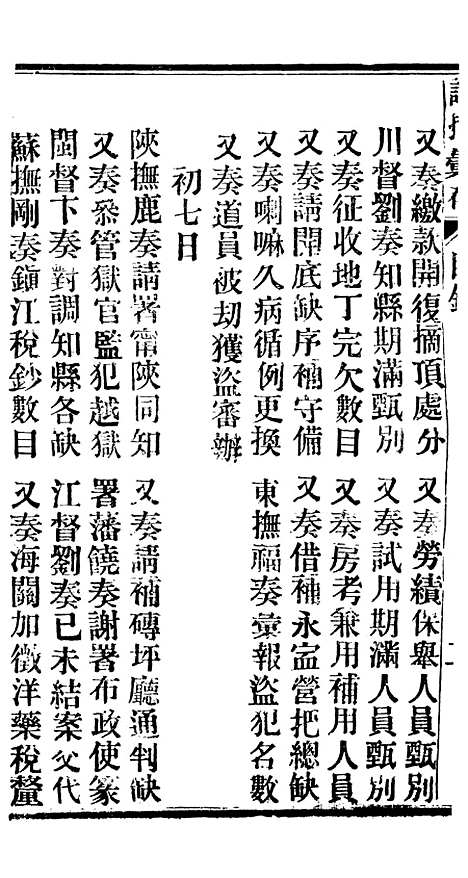 諭摺彙存 目錄
又奏繳款開復摘頂處分 又奏勞績保舉人員甄別
川督劉奏知縣期滿甄別 又奏試用期滿人員甄別
又奏征收地丁完欠數目 又奏房考兼用補用人員
又奏請開底缺序補守備 又奏借補永寍營把總缺
又奏喇嘛久病循例更換 東撫福奏彙報盜犯名數
又奏道員被刧獲盜審辦
初七日
陝撫鹿奏請署甯陝同知 又奏請補磚坪廳通判缺
又奏叅管獄官監犯越獄 署藩饒奏謝署布政使篆
閩督卞奏對調知縣各缺 江督劉奏已未結案交代
蘇撫剛奏鎭江稅鈔數目 又奏海關加徵洋藥稅釐